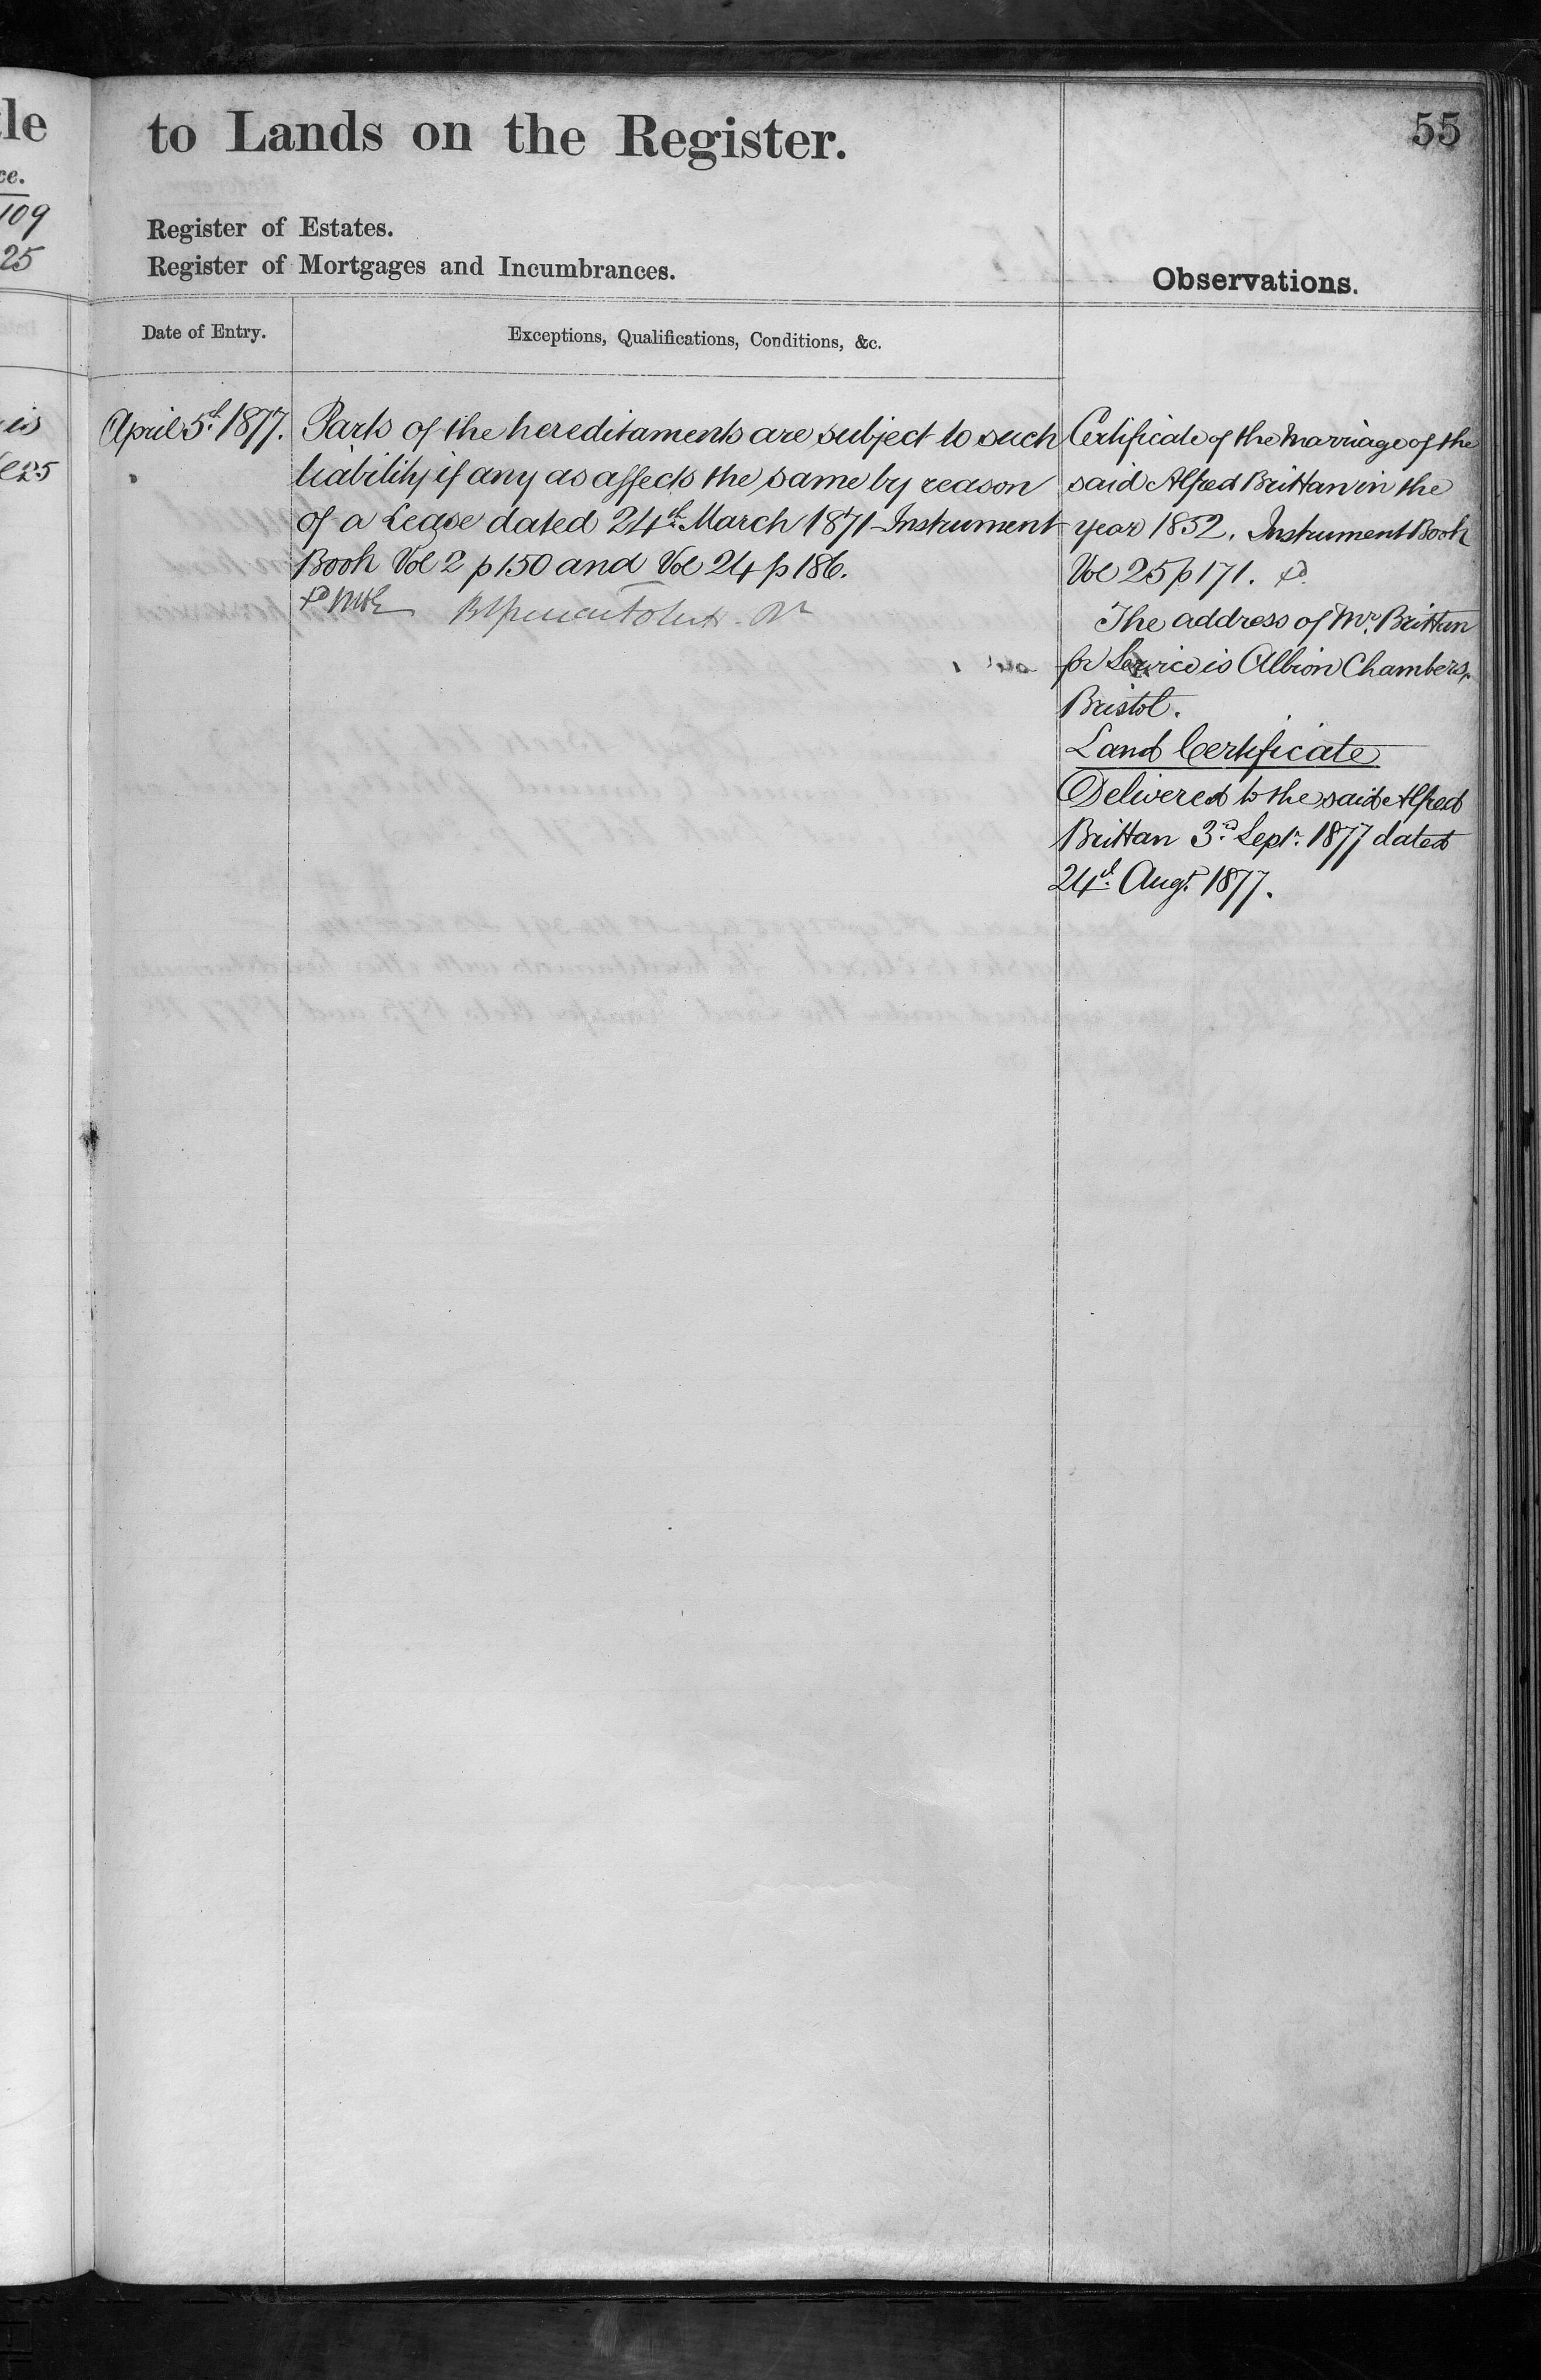 le
ce.
109
25
is
to Lands on the Register.
55
Register of Estates.
Register of Mortgages and Incumbrances.
Observations.
Date of Entry.
Exceptions, Qualifications, Conditions, &c.
April 5th 1877.
Parts of the hereditaments are subject to such
liability if any as affects the same by reason
of a Lease dated 24th March 1871 Instrument
Book Vol 2 p 150 and Vol 24 p 186.
Certificate of the Marriage of the
said Alfred Brittan in the
year 1852. Instrument Book
Vol 25 p 171.
The address of Mr. Brittan
for Service is Albion Chambers,
Bristol.
Land Certificate
Delivered to the said Alfred
Brittan 3rd Septr. 1877 dated
24th Augt. 1877.